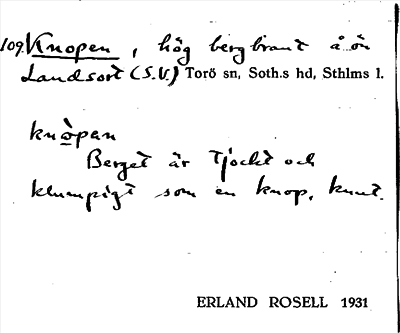 109. Knopen, hög bergbrant å ön
Landsort (S.V.) Torö sn, Soth.s hd, Sthlms l.
knò̱pan
Berget är tjockt och
klumpigt som en knop, knut.
ERLAND ROSELL 1931